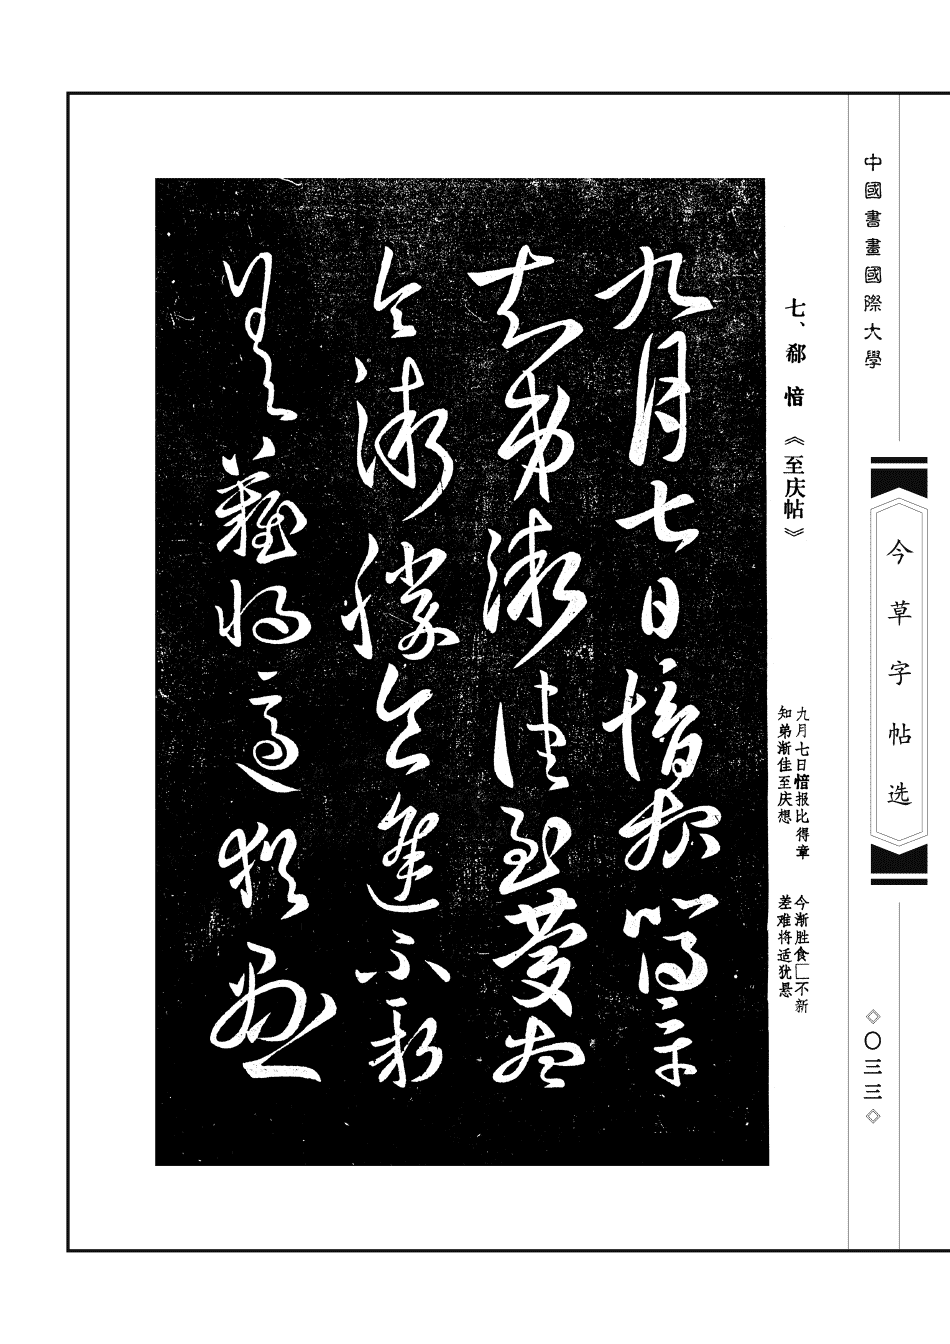 中國書畫國際大學
今草字帖选
◇〇三三◇
七、郗愔《至庆帖》
九月七日愔报比得章
知弟渐佳至庆想
今渐胜食□不新
差难将适犹悬
九月七日愔报比得章
知弟渐佳至庆想
今渐胜食進不新
差難将適犹悬